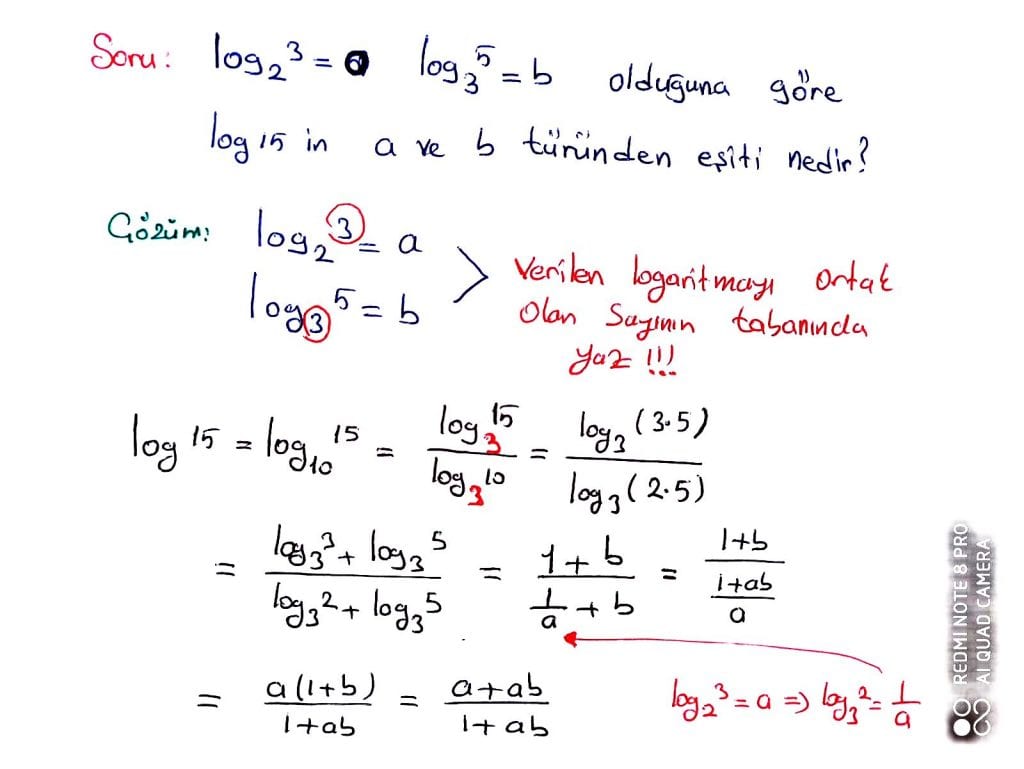 Soru: log₂3 = a log₃5 = b olduğuna göre
log 15 in a ve b türünden eşiti nedir?
Çözüm: log₂3 = a
log₃5 = b
> Verilen logaritmayı ortak
olan sayının tabanında
yaz !!!
log 15 = log₁₀15 = log₃15 / log₃10 = log₃(3.5) / log₃(2.5)
= (log₃3 + log₃5) / (log₃2 + log₃5) = (1+b) / (1/a + b) = (1+b) / ((1+ab)/a)
= a(1+b) / (1+ab) = (a+ab) / (1+ab)
log₂3 = a ⇒ log₃2 = 1/a
REDMI NOTE 8 PRO
AI QUAD CAMERA